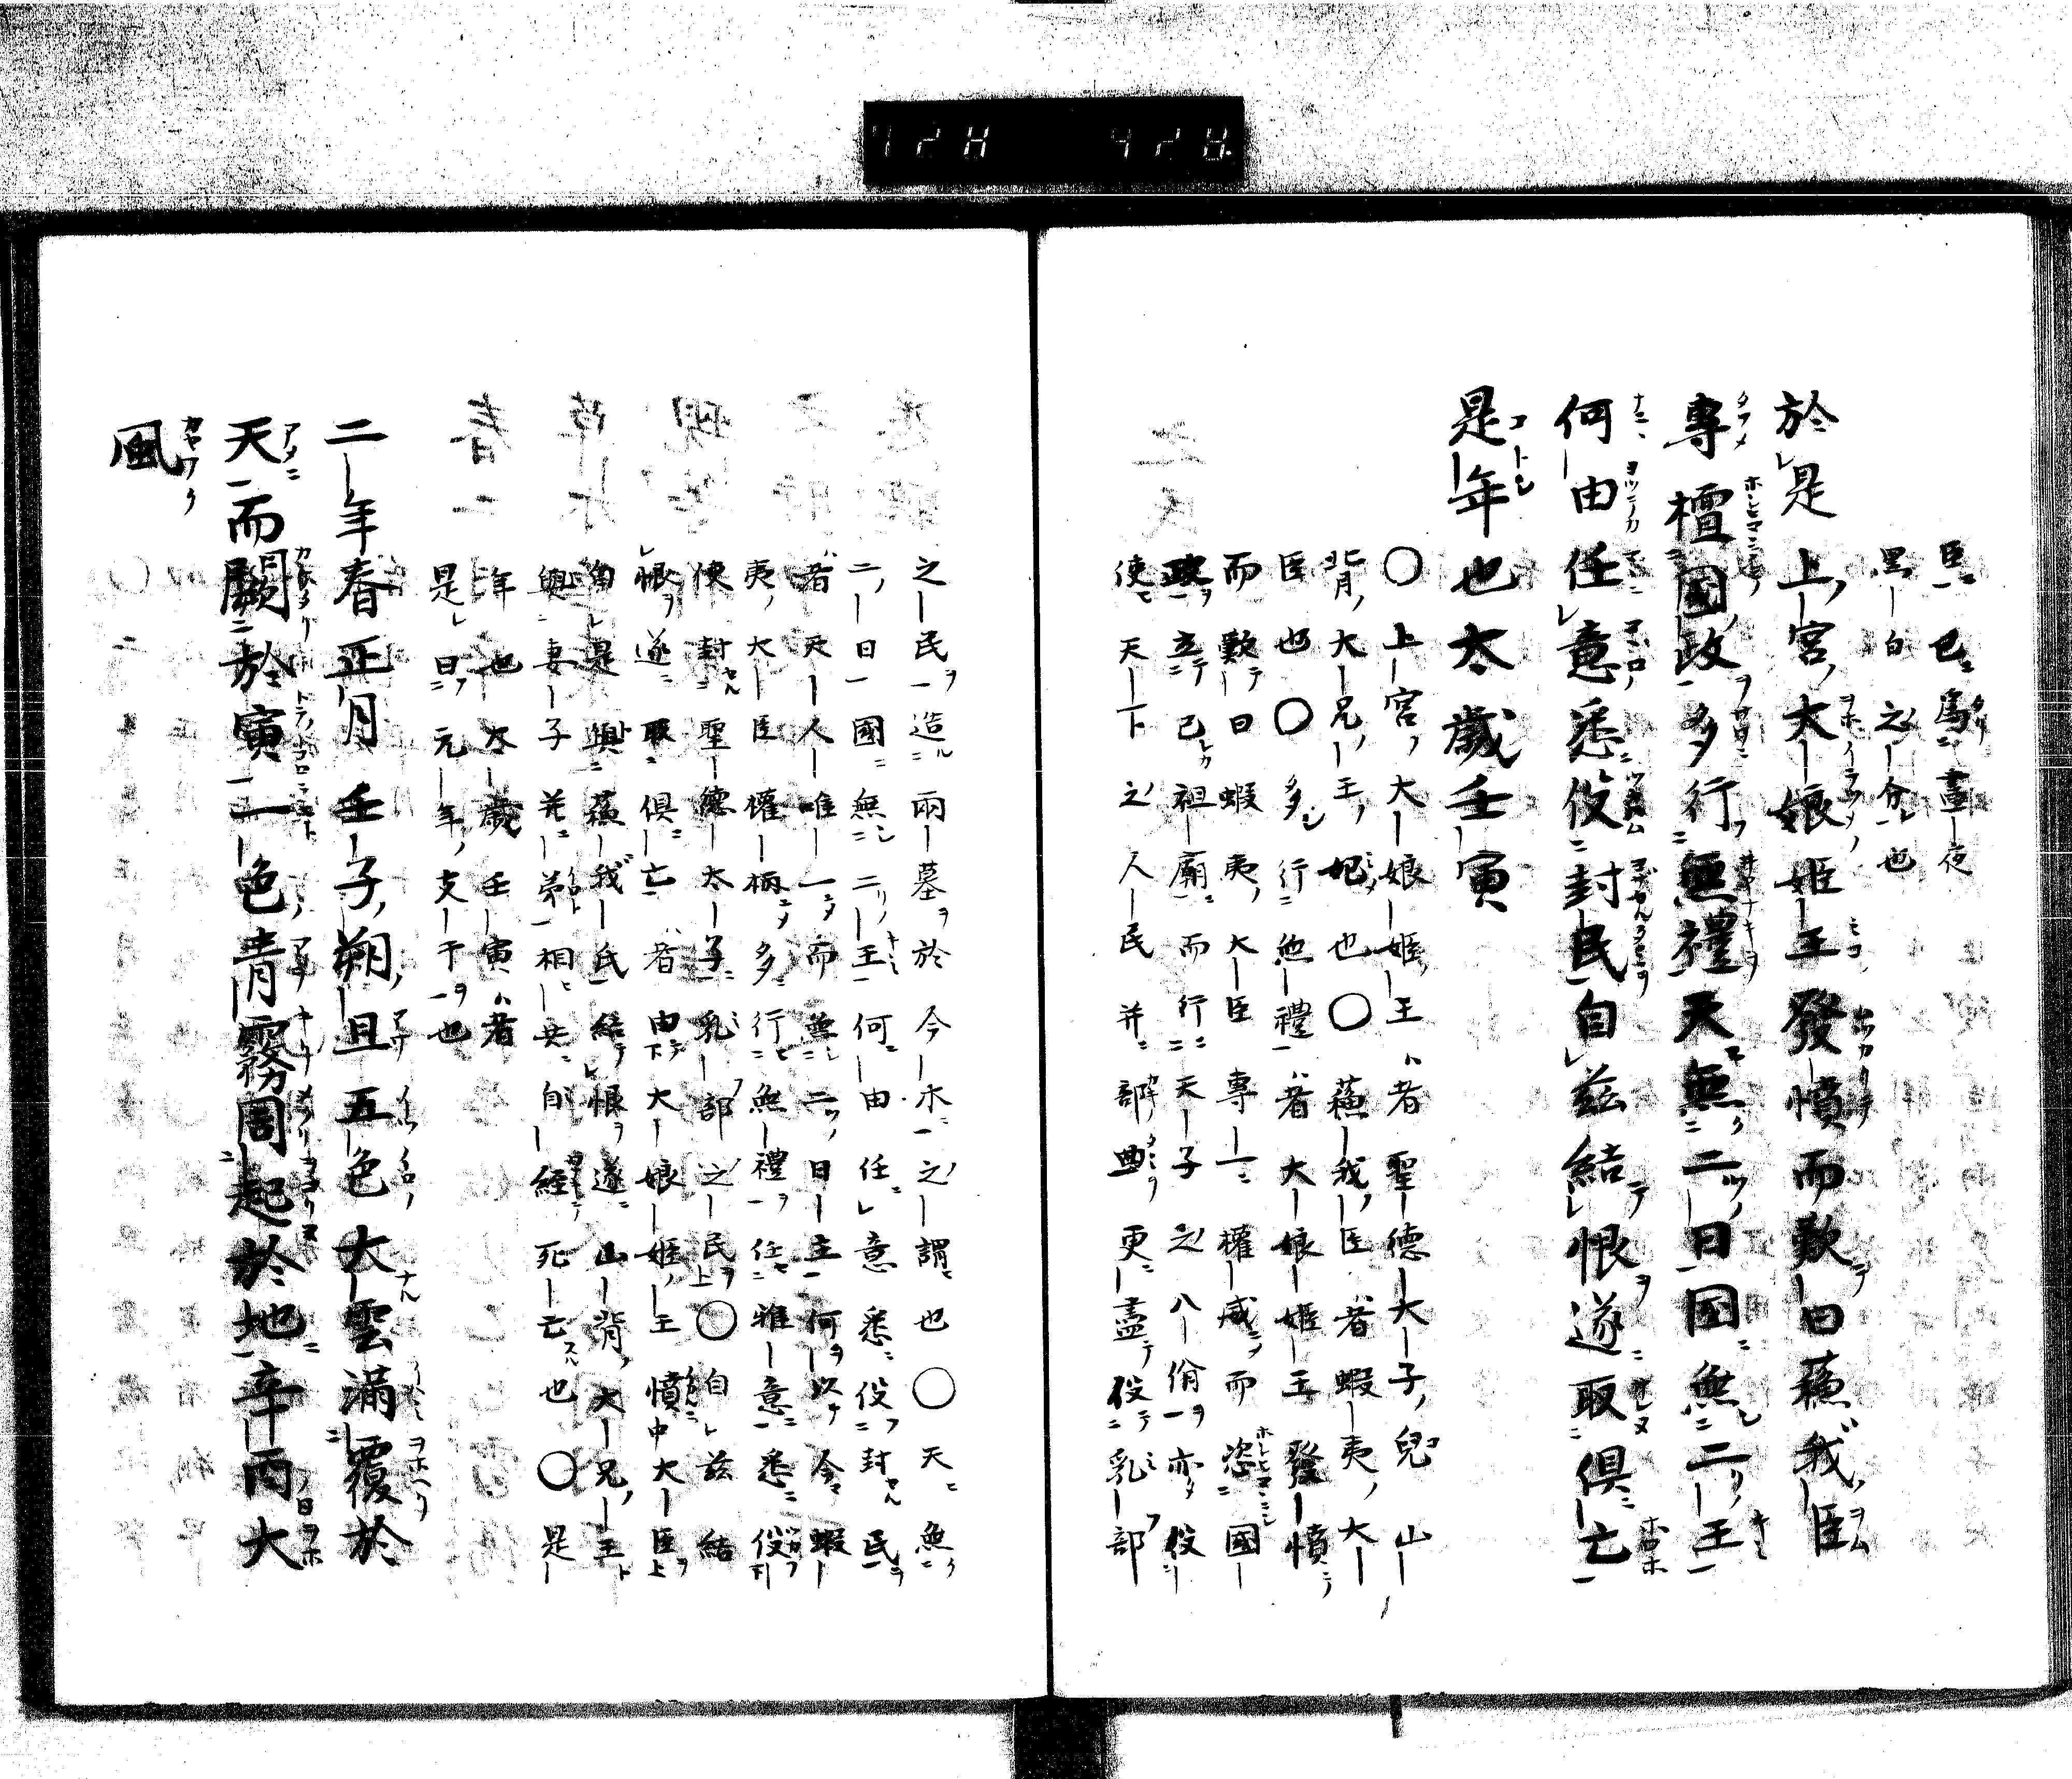 臣已爲晝夜
黒白之分也
於是上宮大娘姫王發憤而歎曰蘓我臣
專擅國政多行無禮天無二日國無二王
何由任意悉役封民自兹結恨遂取俱亡
是年也太歳壬寅
〇上宮大娘姫王者聖德大子兒山
背大兄王妃也〇蘓我臣者蝦夷大
臣也〇多行無禮者大娘姫王發憤
而歎曰蝦夷大臣專一權威而恣國
政立己祖廟而行天子之八佾亦役
使天下之人民并部曲更盡役乳部
之民造兩墓於今木之謂也〇天無
二日國無二王何由任意悉役封民
者天人唯一而無二日主何以令蝦
夷大臣權柄多行無禮任雅意悉役
使封聖德太子乳部之民〇自兹結
恨遂取俱亡者由大娘姫王憤中大臣
自是與蘓我氏結恨遂山背大兄王
與妻子并弟相共自經死亡也〇是
年也太歳壬寅者
是曰元年支干也
二年春正月壬子朔旦五色大雲滿覆於
天而闕於寅一色青霧周起於地辛丙大
風